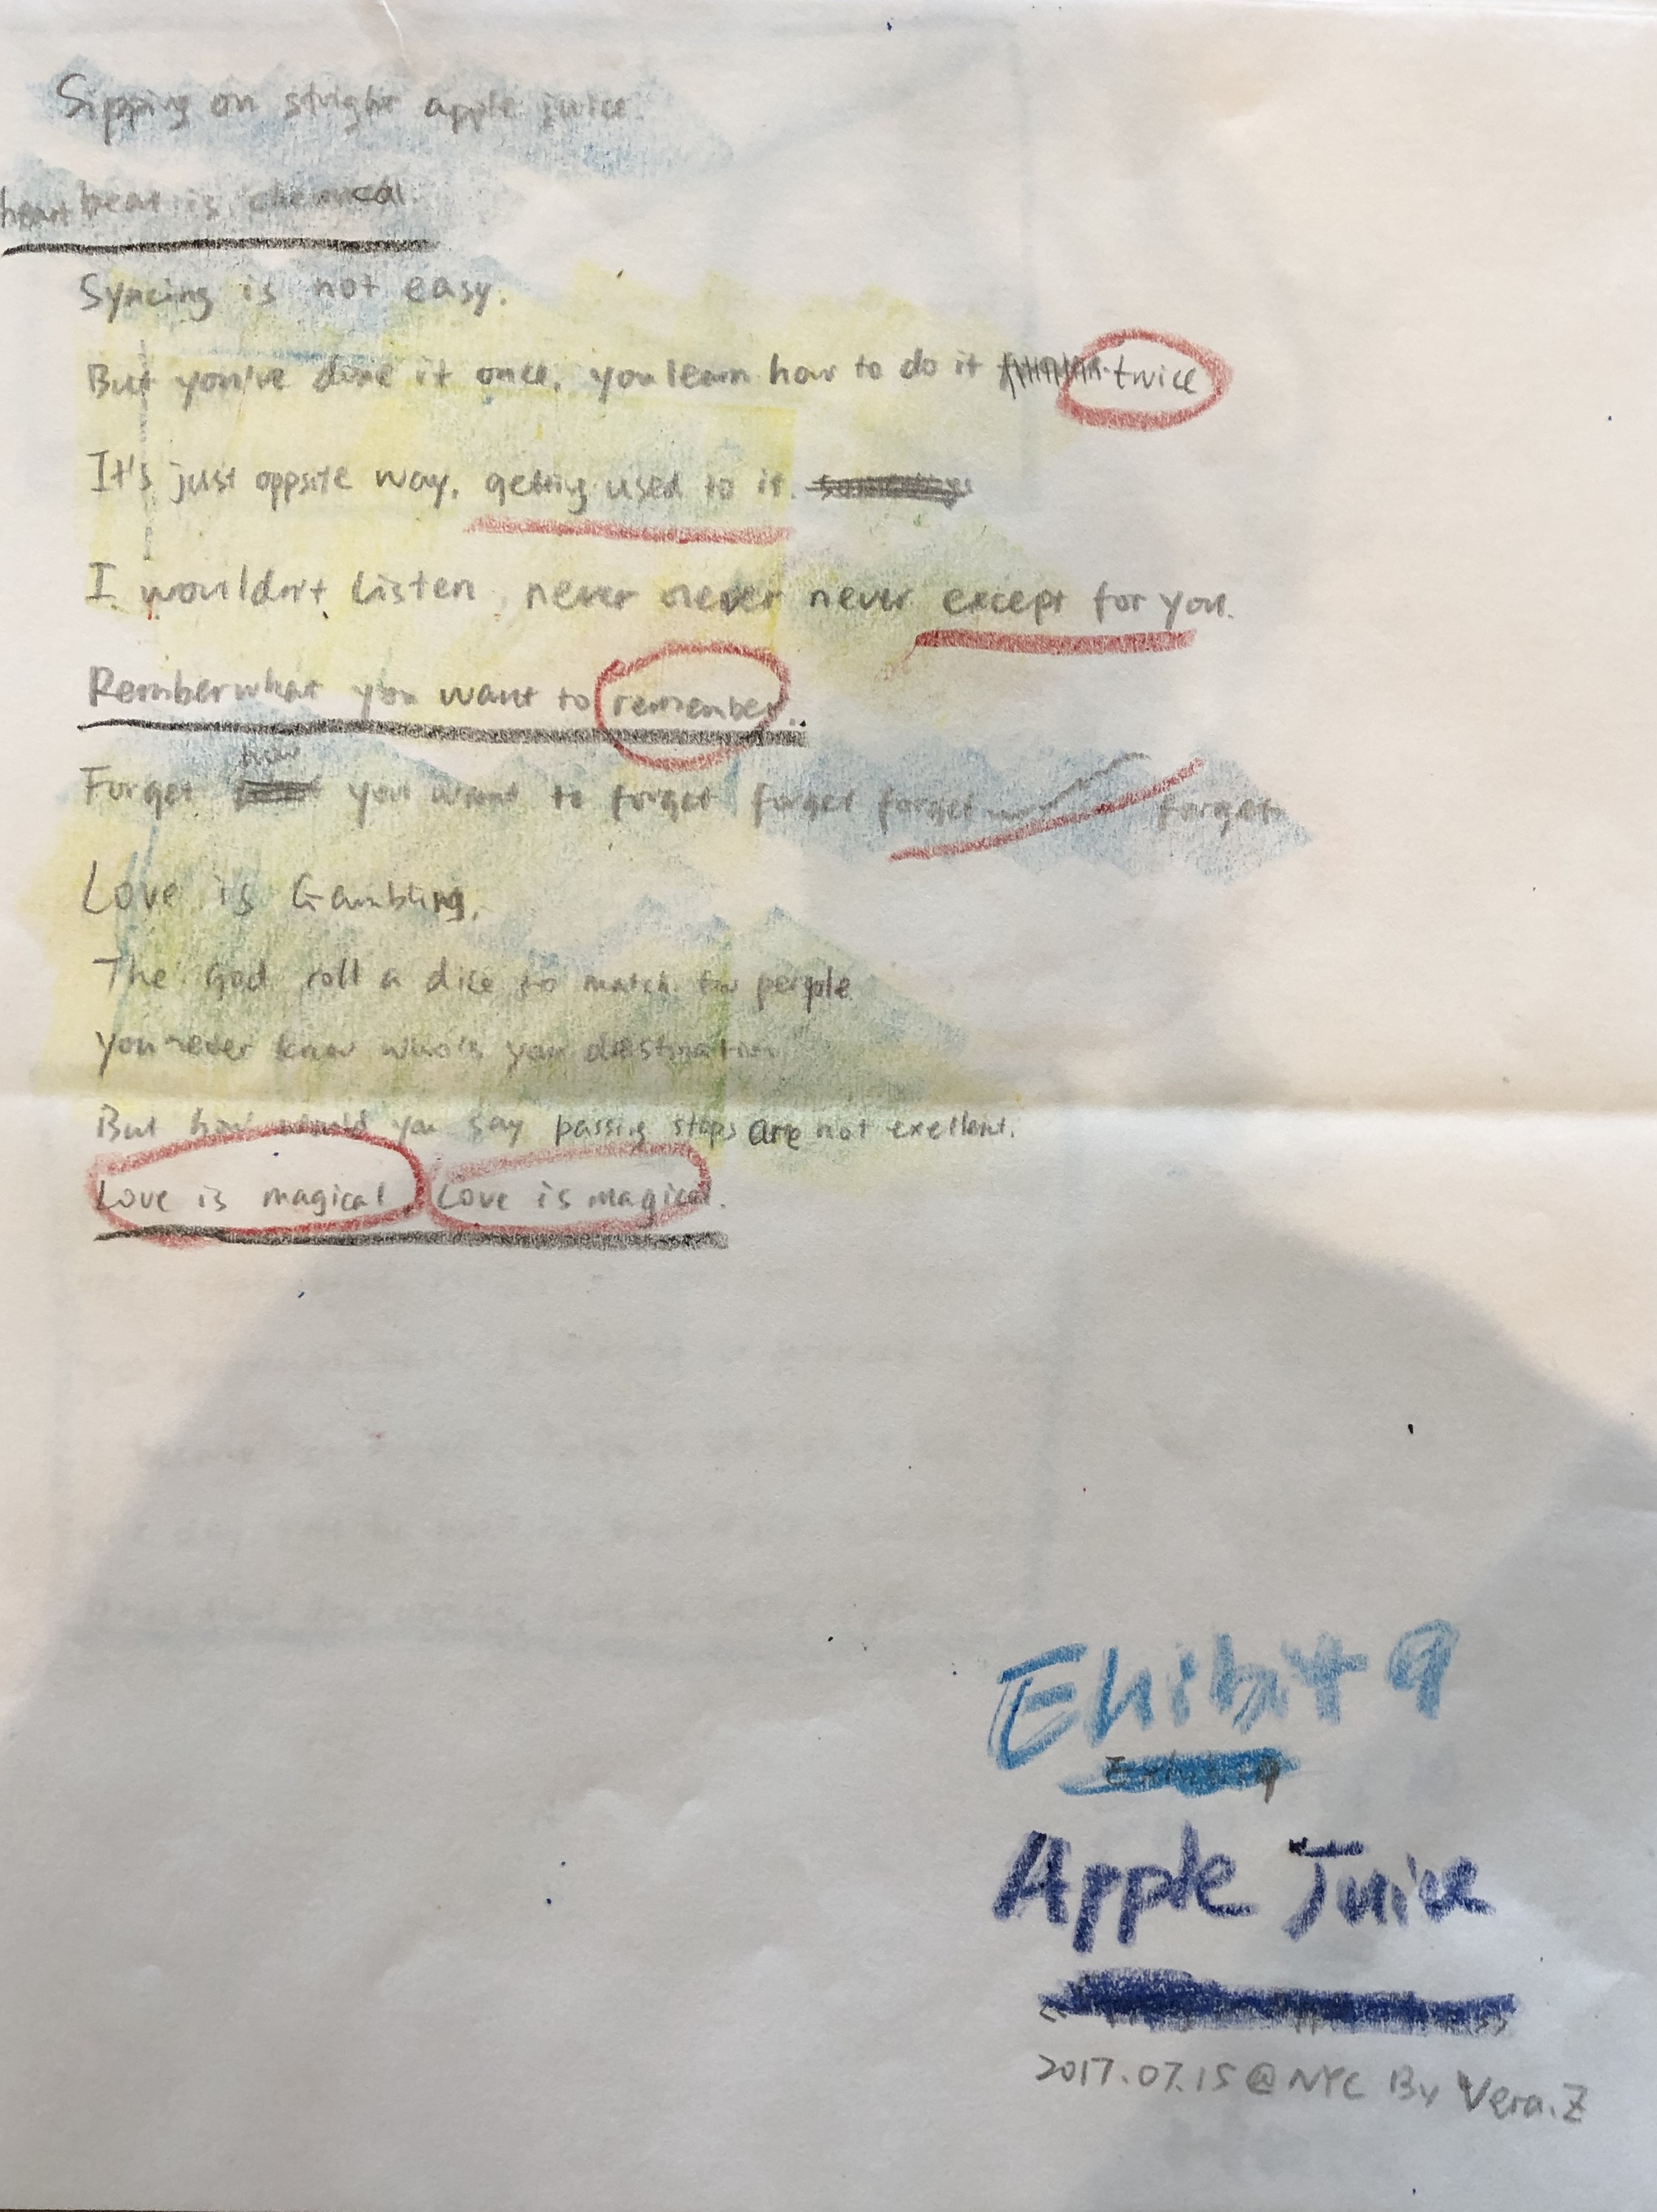 Sipping on stright apple juice.
heart beat is chemical.
Syncing is not easy.
But you've done it once, you learn how to do it twice
It's just oppsite way, getting used to it.
I wouldn't listen, never never never except for you.
Rember what you want to remember..
how
Forget you want to forget forget forget forget
Love is Gambling,
The God roll a dice to match two people
you never know who's your destination
But how would you say passing stops are not exellent.
Love is magical, Love is magical.
Ehibit 9
Apple Juice
2017.07.15@NYC By Vera.Z